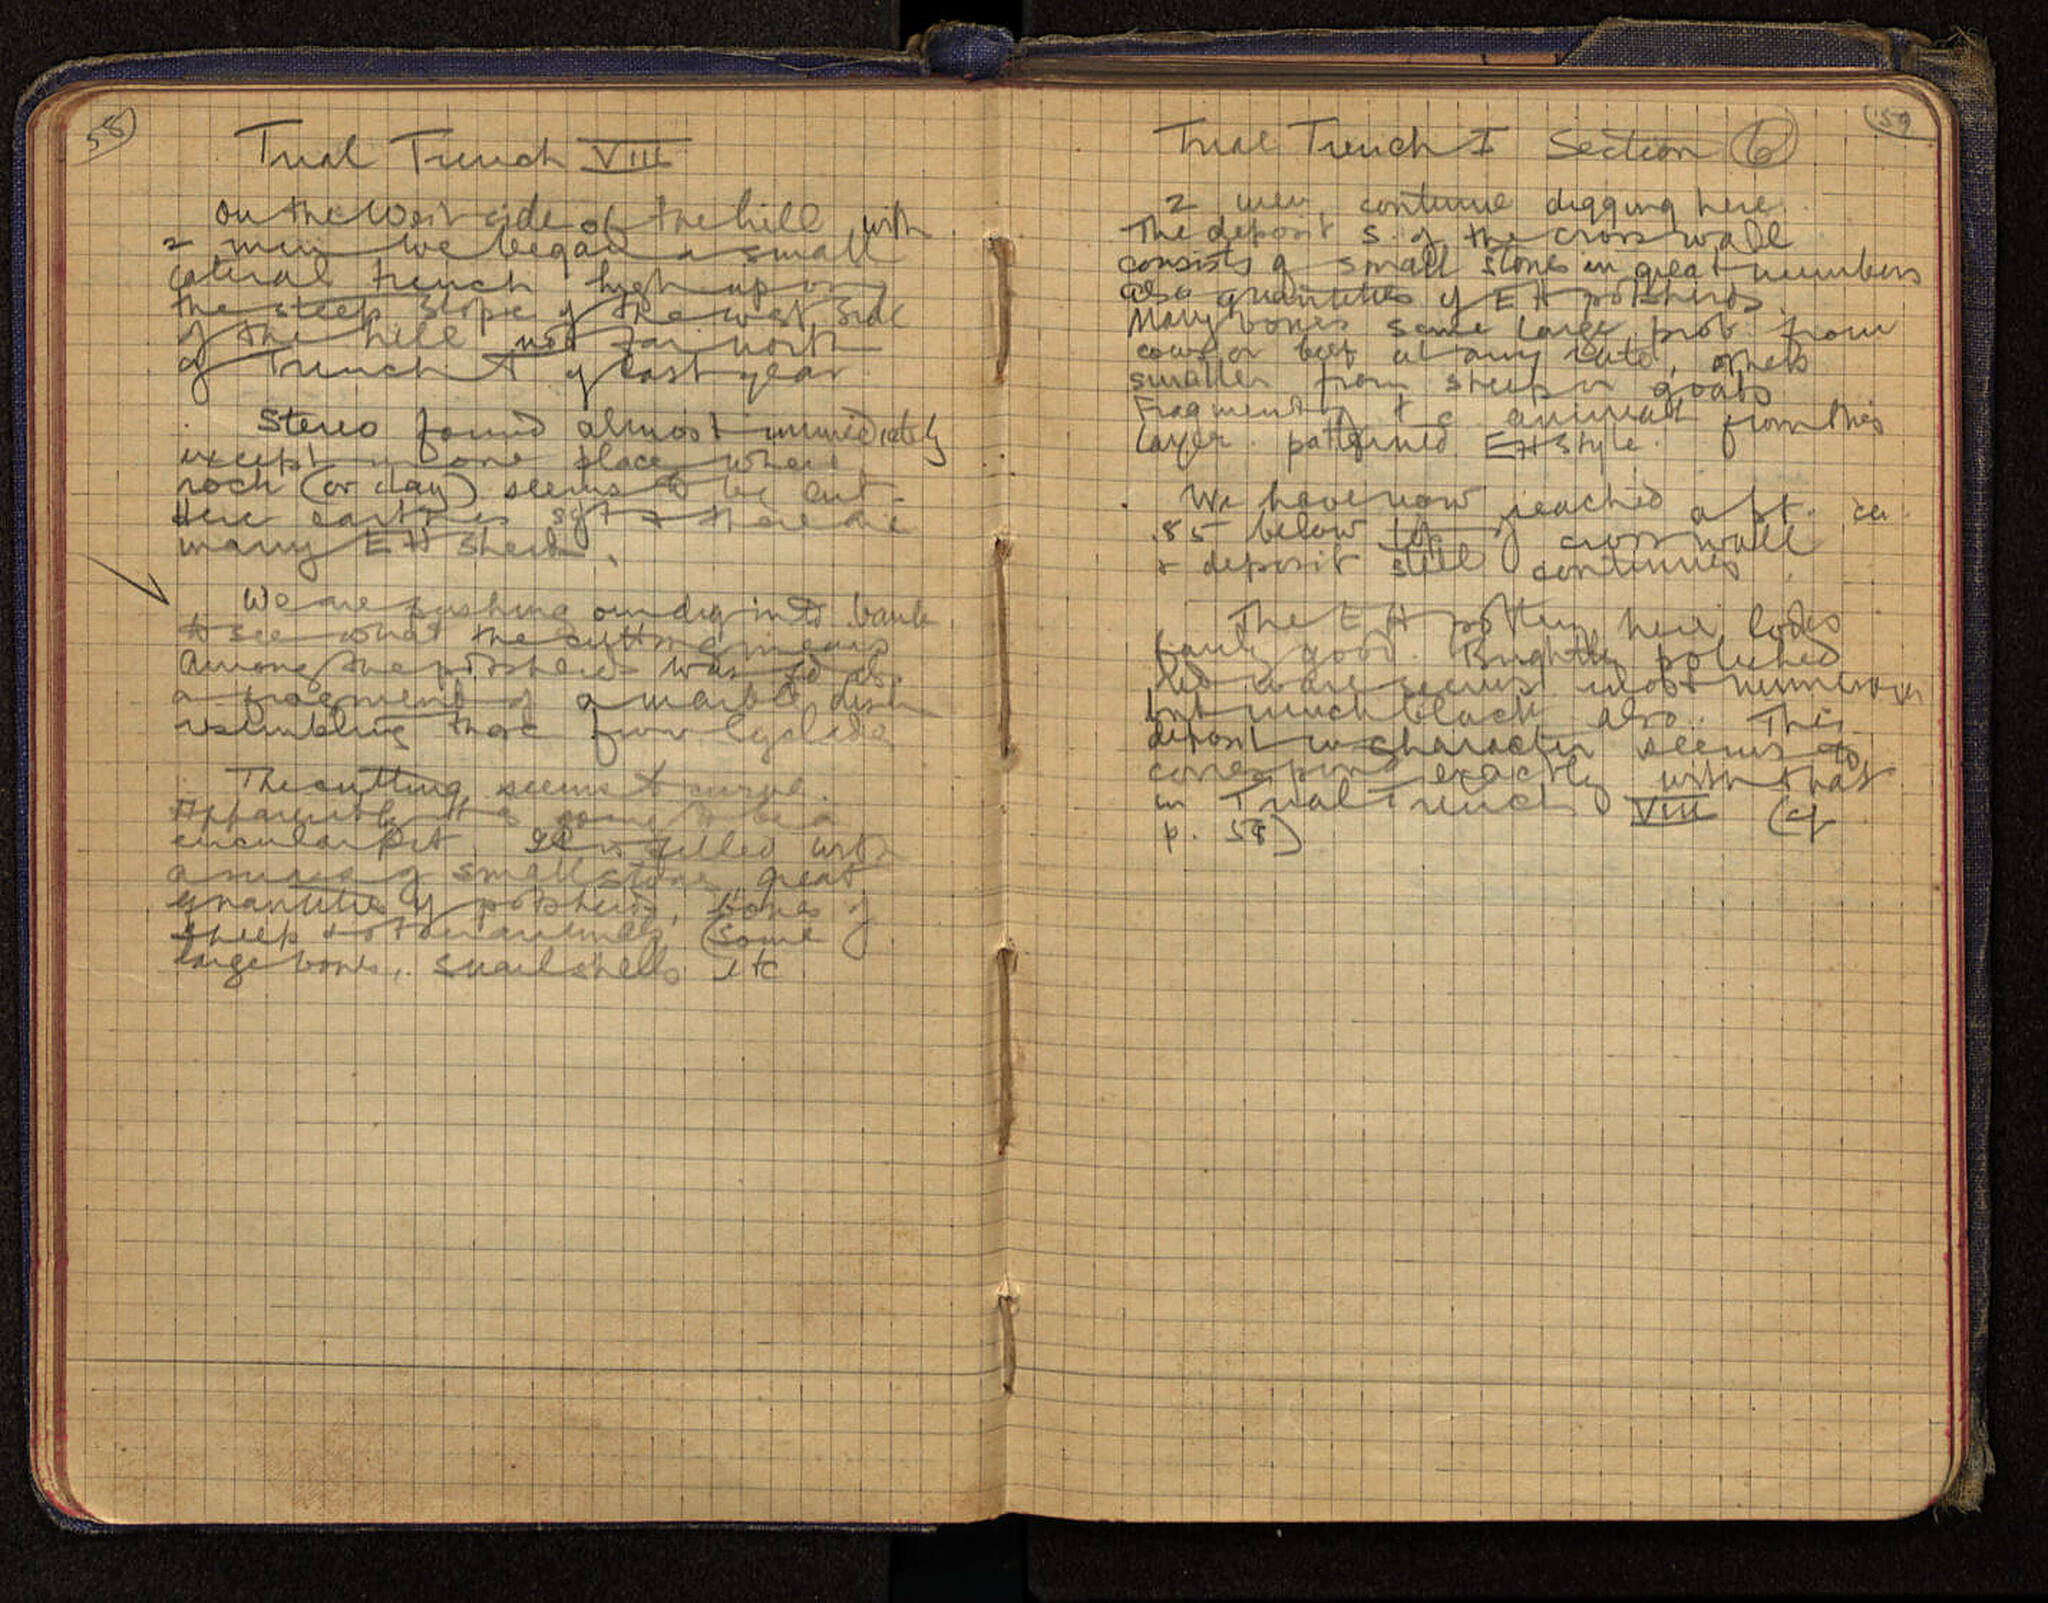 58
Trial Trench VIII
On the West side of the hill with
2 men we began a small
lateral trench high up on
the steep slope of the west side
of the hill not far north
of Trench A of last year
Stereo found almost immediately
except in one place where
rock (or clay) seems to be cut.
Here earth is soft & there are
many EH sherds.
We are pushing our dig into bank
to see what the cutting means
Among the potsherds was
a fragment of a marble dish
resembling those from Cyclades
The cutting seems to curve.
Apparently it is going to be a
circular pit. It is filled with
a mass of small stones, great
quantities of potsherds, bones of
sheep & other animals (some
large bones, snail shells etc
59
Trial Trench I Section 6
2 men continue digging here.
The deposit S. of the cross wall
consists of small stones in great numbers
also quantities of EH potsherds.
Many bones some large prob. from
cows or beef at any rate, others
smaller from sheep or goats
Fragment of t c animal from this
layer. patterned EH style.
We have now reached a pt. ca.
.85 below top of cross wall
& deposit still continues
The EH pottery here looks
fairly good. Brightly polished
red ware seems most numerous
but much black also. This
deposit in character seems to
correspond exactly with that
in Trial Trench VIII (cf
p. 58)